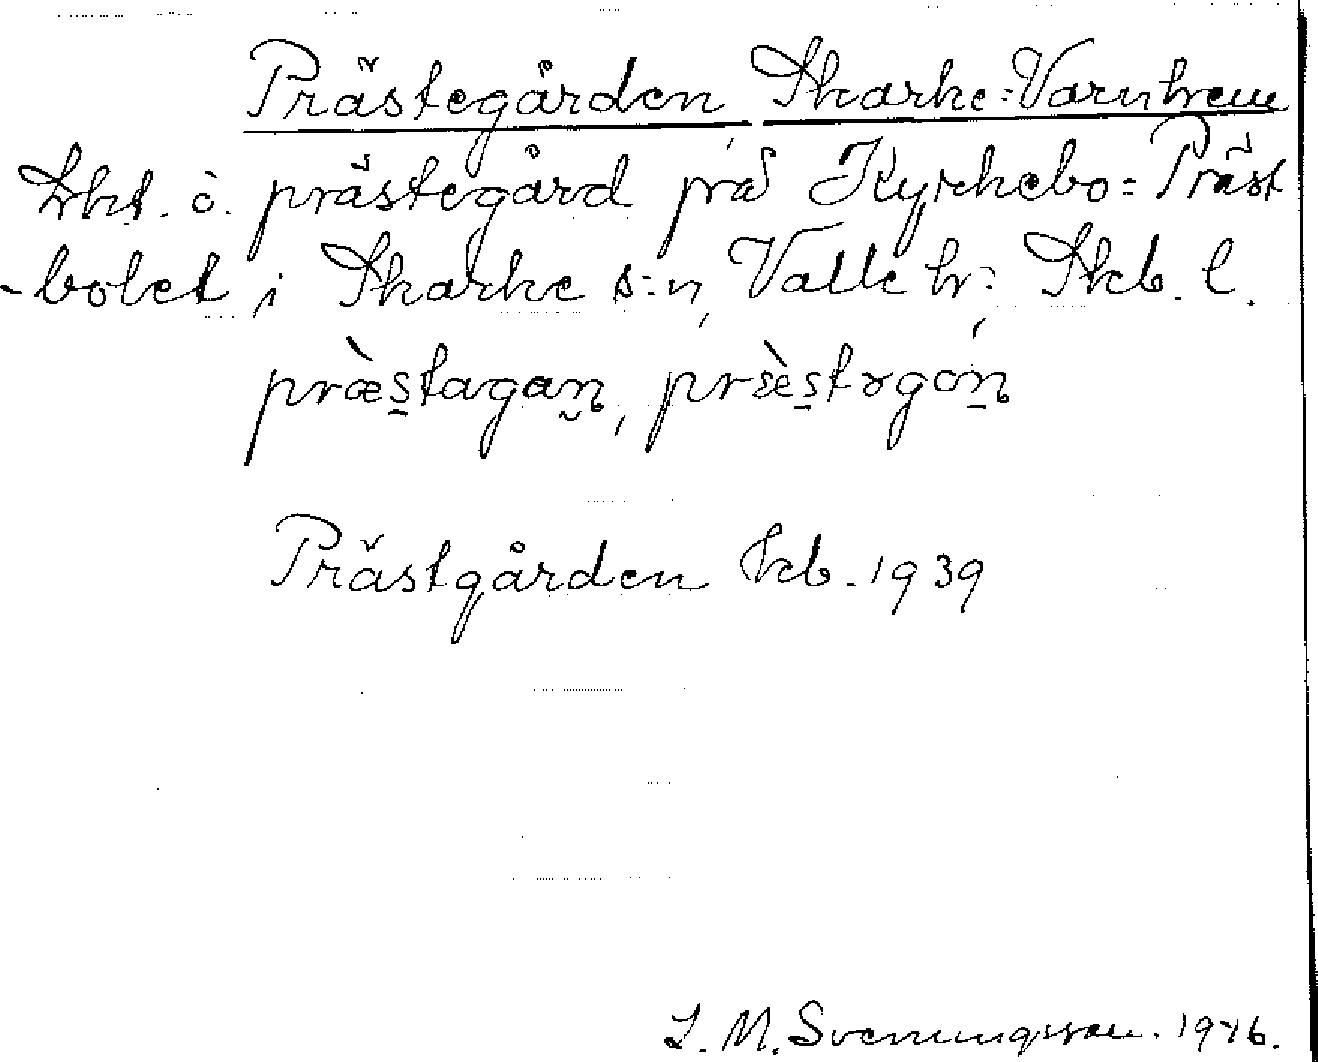 Prästegården Skarke=Varnhem
kht. o. prästegård på Kyrkebo=Präst
-bolet i Skarke s:n, Valle hr: Skb. l.
præ̀stagan, præ̀stɤgón
Prästgården Tkb. 1939
L. M. Svenungsson. 1946.